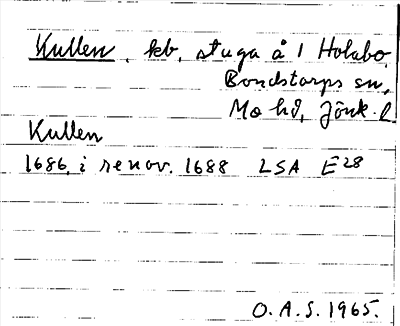 Kullen, kb, stuga å 1 Holabo,
Bondstorps sn,
Mo hd, Jönk. l.
Kullen
1686, i renov. 1688 LSA E28
O.A.S. 1965.